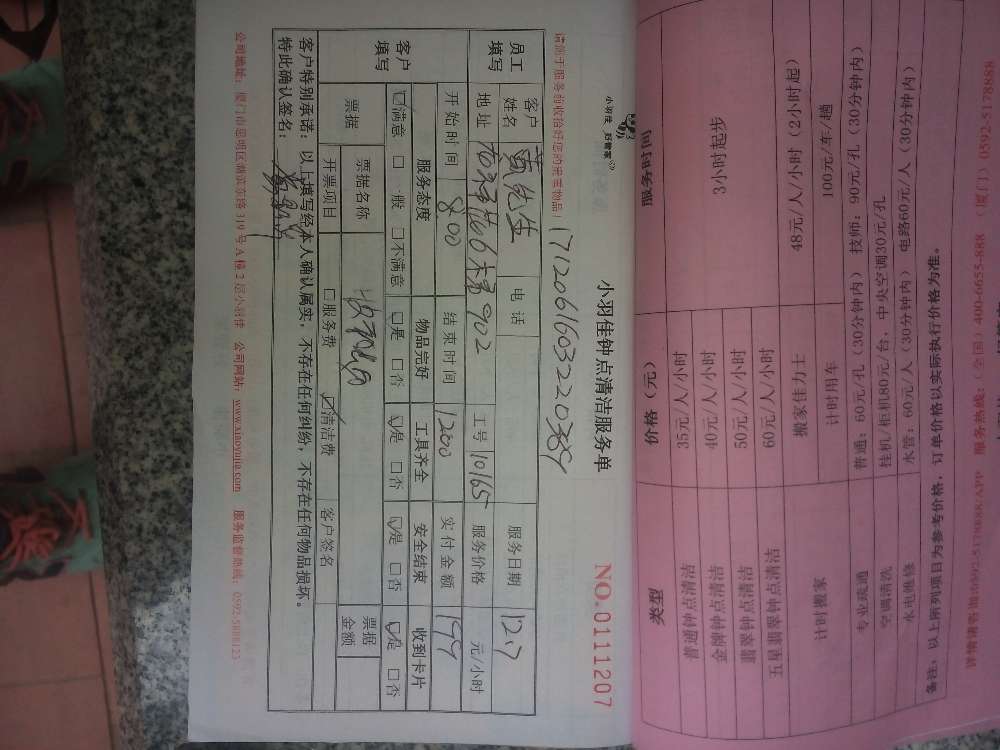 服务时间 价格（元） 类型
3小时起步 35元/人/小时 普通钟点清洁
40元/人/小时 金牌钟点清洁
50元/人/小时 翡翠钟点清洁
60元/人/小时 五星翡翠钟点清洁
48元/人/小时（2小时起） 搬家佳力士 计时搬家
100元/车/趟 计时用车
普通：60元/孔（30分钟内） 技师：90元/孔（30分钟内） 专业疏通
挂机/柜机80元/台，中央空调30元/孔 空调清洗
水管：60元/人（30分钟内） 电路60元/人（30分钟内） 水电维修
备注：以上所列项目为参考价格，订单价格以实际执行价格为准。
服务热线：（全国）400-6655-888 （厦门）0592-5178888
小羽佳 好管家
小羽佳钟点清洁服务单 NO.0111207
请您于服务前收拾好您的贵重物品！ 1712061603220389
员工填写 客户姓名 黄先生 电话 服务日期 12.7
地址 6楼902 工号 10165 服务价格 元/小时
客户填写 开始时间 8:00 结束时间 1200 实付金额 199
服务态度 物品完好 工具齐全 安全结束 收到卡片
☑满意 □一般 □不满意 ☑是 □否 ☑是 □否 ☑是 □否 ☑是 □否
票据 票据名称 票据金额
开票项目 □服务费 ☑清洁费 客户签名
客户特别承诺：以上填写经本人确认属实，不存在任何纠纷，不存在任何物品损坏。
特此确认签名：
公司地址：厦门市思明区湖滨东路319号A幢2层小羽佳 公司网站：www.xiaoyujia.com 服务监督热线：0592-5088123